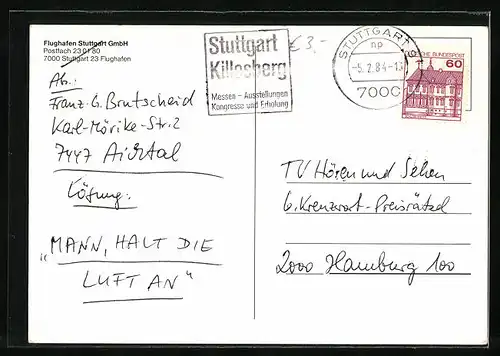 Flughafen Stuttgart GmbH
Postfach 23 01 80
7000 Stuttgart 23 Flughafen
Stuttgart
Killesberg
Messen – Ausstellungen
Kongresse und Erholung
€ 3,-
STUTTGART
np
-5.2.84-1
7000
DEUTSCHE BUNDESPOST
60
Ab.:
Franz-G. Brutscheid
Karl-Mörike-Str. 2
7447 Aichtal
Lösung:
„MANN, HALT DIE
LUFT AN“
TV Hören und Sehen
6. Kreuzwort-Preisrätsel
2000 Hamburg 100